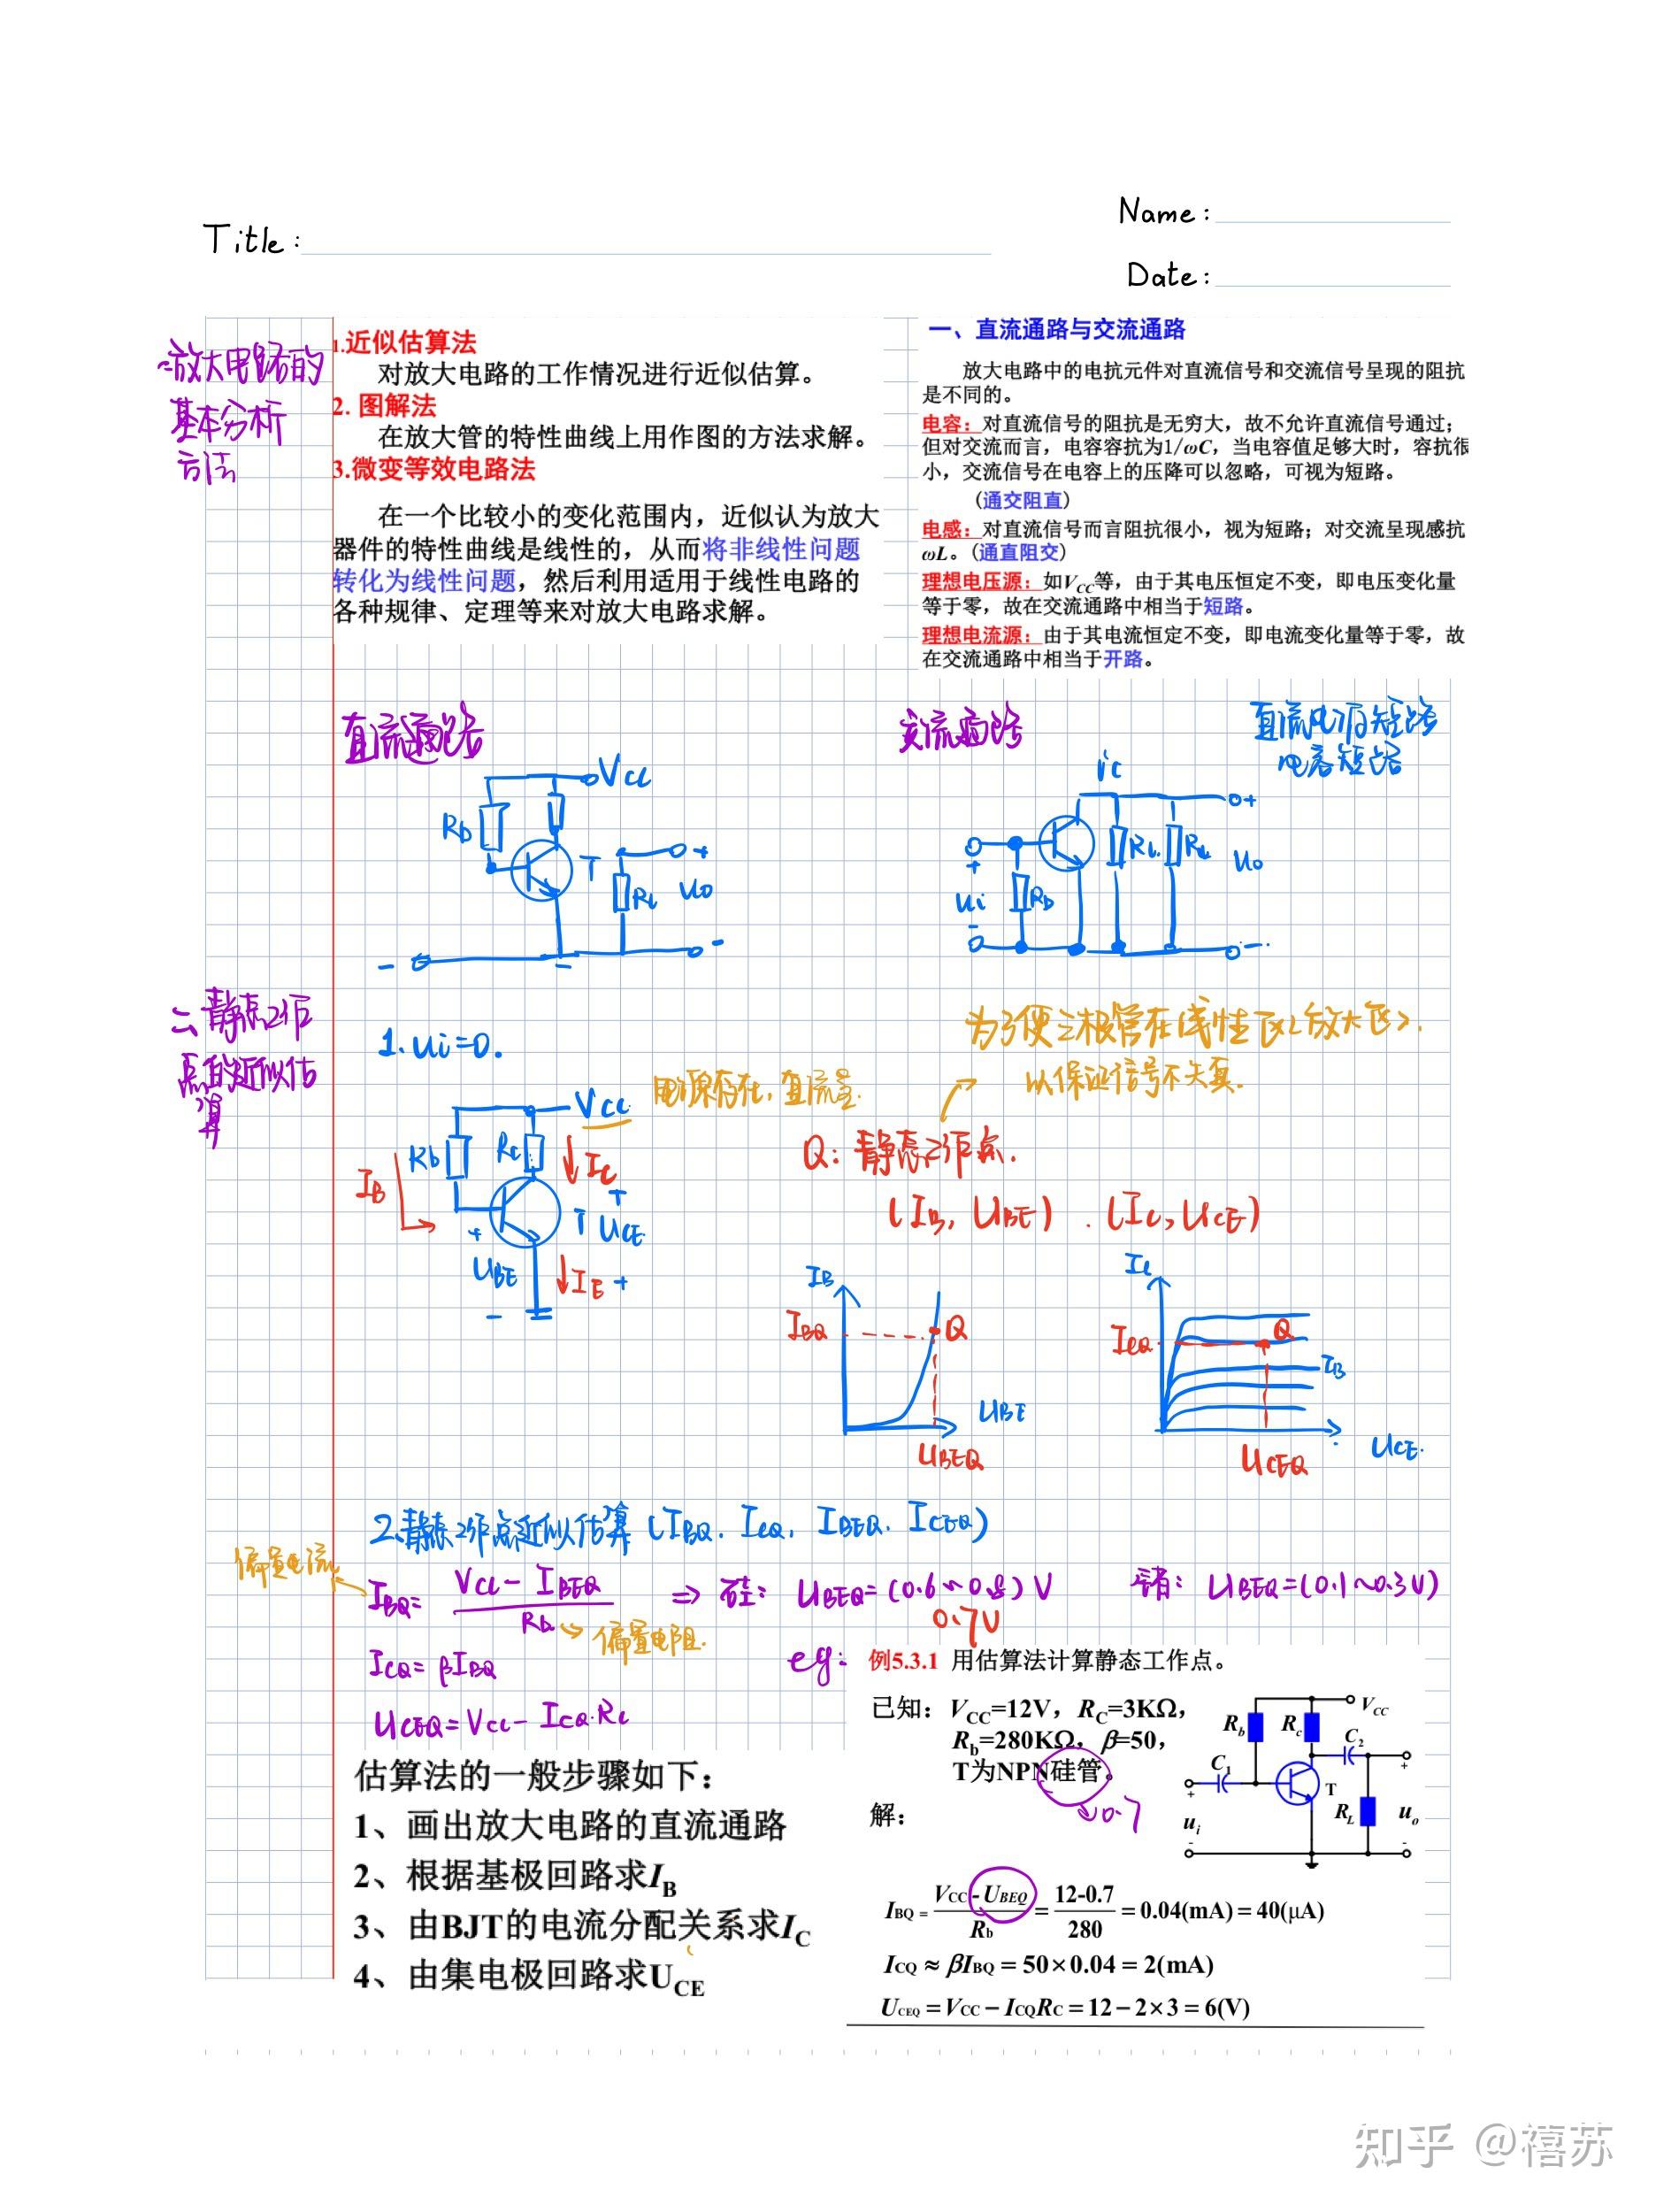 Title:
Name:
Date:
一放大电路的
基本分析
方法
1.近似估算法
对放大电路的工作情况进行近似估算。
2. 图解法
在放大管的特性曲线上用作图的方法求解。
3.微变等效电路法
在一个比较小的变化范围内，近似认为放大
器件的特性曲线是线性的，从而将非线性问题
转化为线性问题，然后利用适用于线性电路的
各种规律、定理等来对放大电路求解。
一、直流通路与交流通路
放大电路中的电抗元件对直流信号和交流信号呈现的阻抗
是不同的。
电容：对直流信号的阻抗是无穷大，故不允许直流信号通过；
但对交流而言，电容容抗为1/ωC，当电容值足够大时，容抗很
小，交流信号在电容上的压降可以忽略，可视为短路。
(通交阻直)
电感：对直流信号而言阻抗很小，视为短路；对交流呈现感抗
ωL。(通直阻交)
理想电压源：如VCC等，由于其电压恒定不变，即电压变化量
等于零，故在交流通路中相当于短路。
理想电流源：由于其电流恒定不变，即电流变化量等于零，故
在交流通路中相当于开路。
直流通路
Vcc
Rb
T
RL
uo
+
-
-
交流通路
直流电源短路
电容短路
ic
+
ui
-
Rb
RL
RL
uo
+
-
二、静态工作
点的近似估
算
1. ui=0.
Vcc
电源存在，直流量.
Rb
Rc
IB
IC
+
T
UCE
+
UBE
-
IE
+
为了使三极管在线性区(放大区).
以保证信号不失真.
Q: 静态工作点.
(IB, UBE) . (IC, UCE)
IB
IBQ
Q
UBE
UBEQ
IC
ICQ
Q
IB
UCE.
UCEQ
2.静态工作点近似估算 (IBQ. ICQ. IBEQ. ICEQ)
偏置电流
IBQ= Vcc - IBEQ / Rb
偏置电阻.
⇒ 硅: UBEQ=(0.6~0.8)V
0.7V
锗: UBEQ=(0.1~0.3V)
ICQ= βIBQ
UCEQ=Vcc- ICQ·Rc
估算法的一般步骤如下：
1、画出放大电路的直流通路
2、根据基极回路求IB
3、由BJT的电流分配关系求IC
4、由集电极回路求UCE
eg:
例5.3.1 用估算法计算静态工作点。
已知：VCC=12V，RC=3KΩ，
Rb=280KΩ，β=50，
T为NPN硅管。
0.7
解：
VCC
Rb
Rc
C1
C2
T
RL
+
ui
-
+
uo
-
IBQ = VCC - UBEQ / Rb = 12-0.7 / 280 = 0.04(mA) = 40(μA)
ICQ ≈ βIBQ = 50×0.04 = 2(mA)
UCEQ = VCC − ICQRC = 12 − 2×3 = 6(V)
知乎 @禧苏